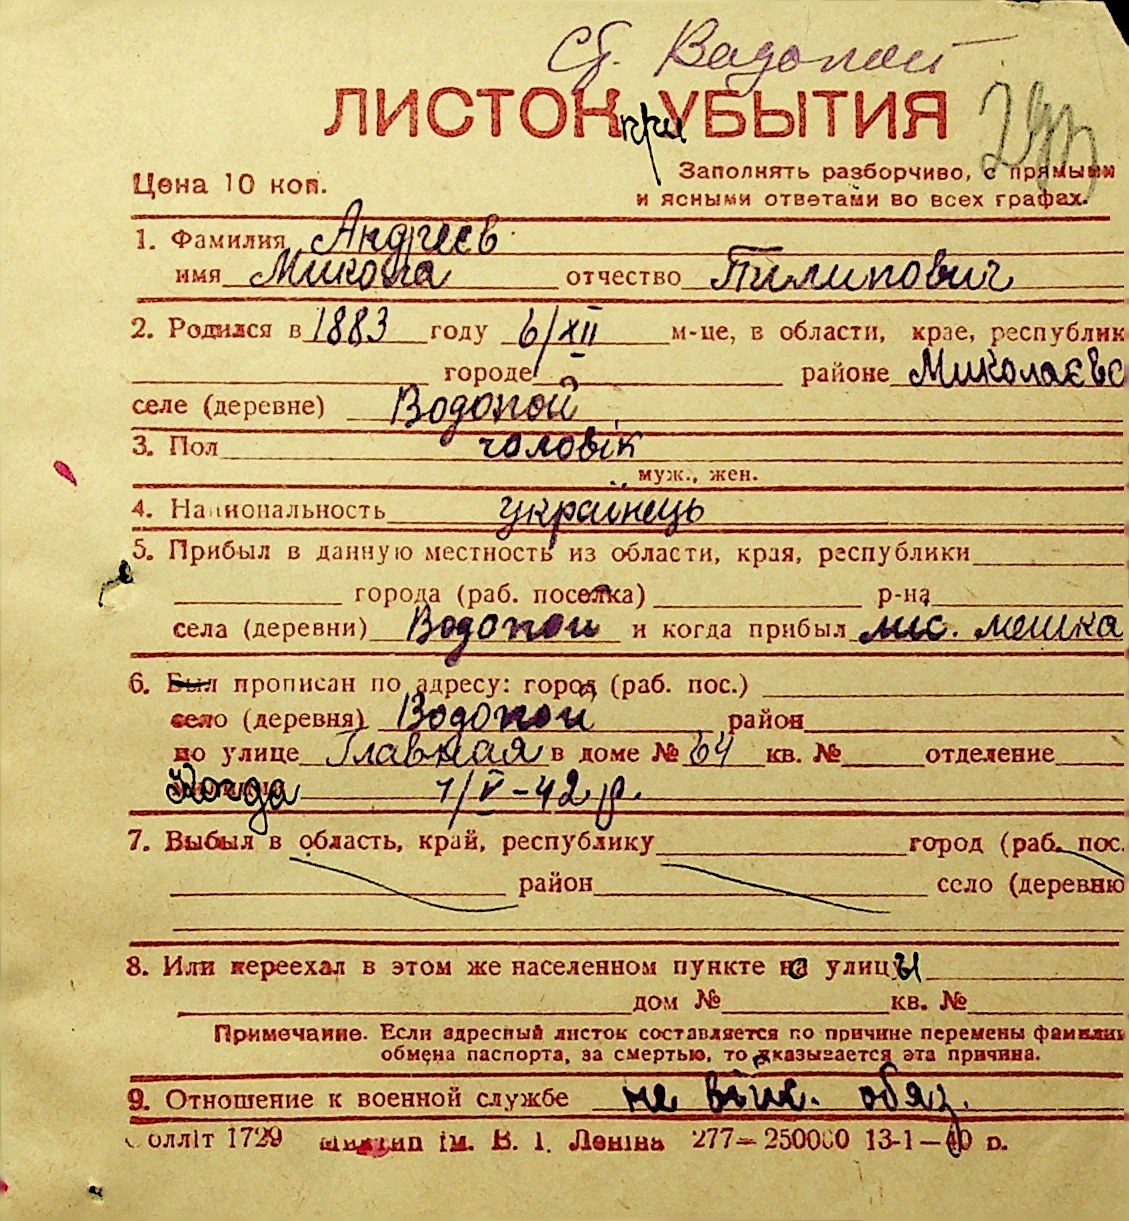 Сt. Вадопой
ЛИСТОК при УБЫТИЯ
Цена 10 коп.
Заполнять разборчиво, с прямыми
и ясными ответами во всех графах.
1. Фамилия Андреєв
имя Микола отчество Пилипович
2. Родился в 1883 году 6/XII м-це, в области, крае, республик
городе районе Миколаєвс
селе (деревне) Водопой
3. Пол чоловік
муж., жен.
4. Национальность українець
5. Прибыл в данную местность из области, края, республики
города (раб. поселка) р-на
села (деревни) Водопой и когда прибыл міс. мешка
6. Был прописан по адресу: город (раб. пос.)
село (деревня) Водопой район
по улице Главная в доме № 64 кв. № отделение
Когда 1/V-42 р.
7. Выбыл в область, край, республику город (раб. пос.
район село (деревню
8. Или переехал в этом же населенном пункте на улицы
дом № кв. №
Примечание. Если адресный листок составляется по причине перемены фамилии
обмена паспорта, за смертью, то указывается эта причина.
9. Отношение к военной службе не війс. обяз.
олліт 1729 ім. В. І. Леніна 277—250000 13-1—40 р.